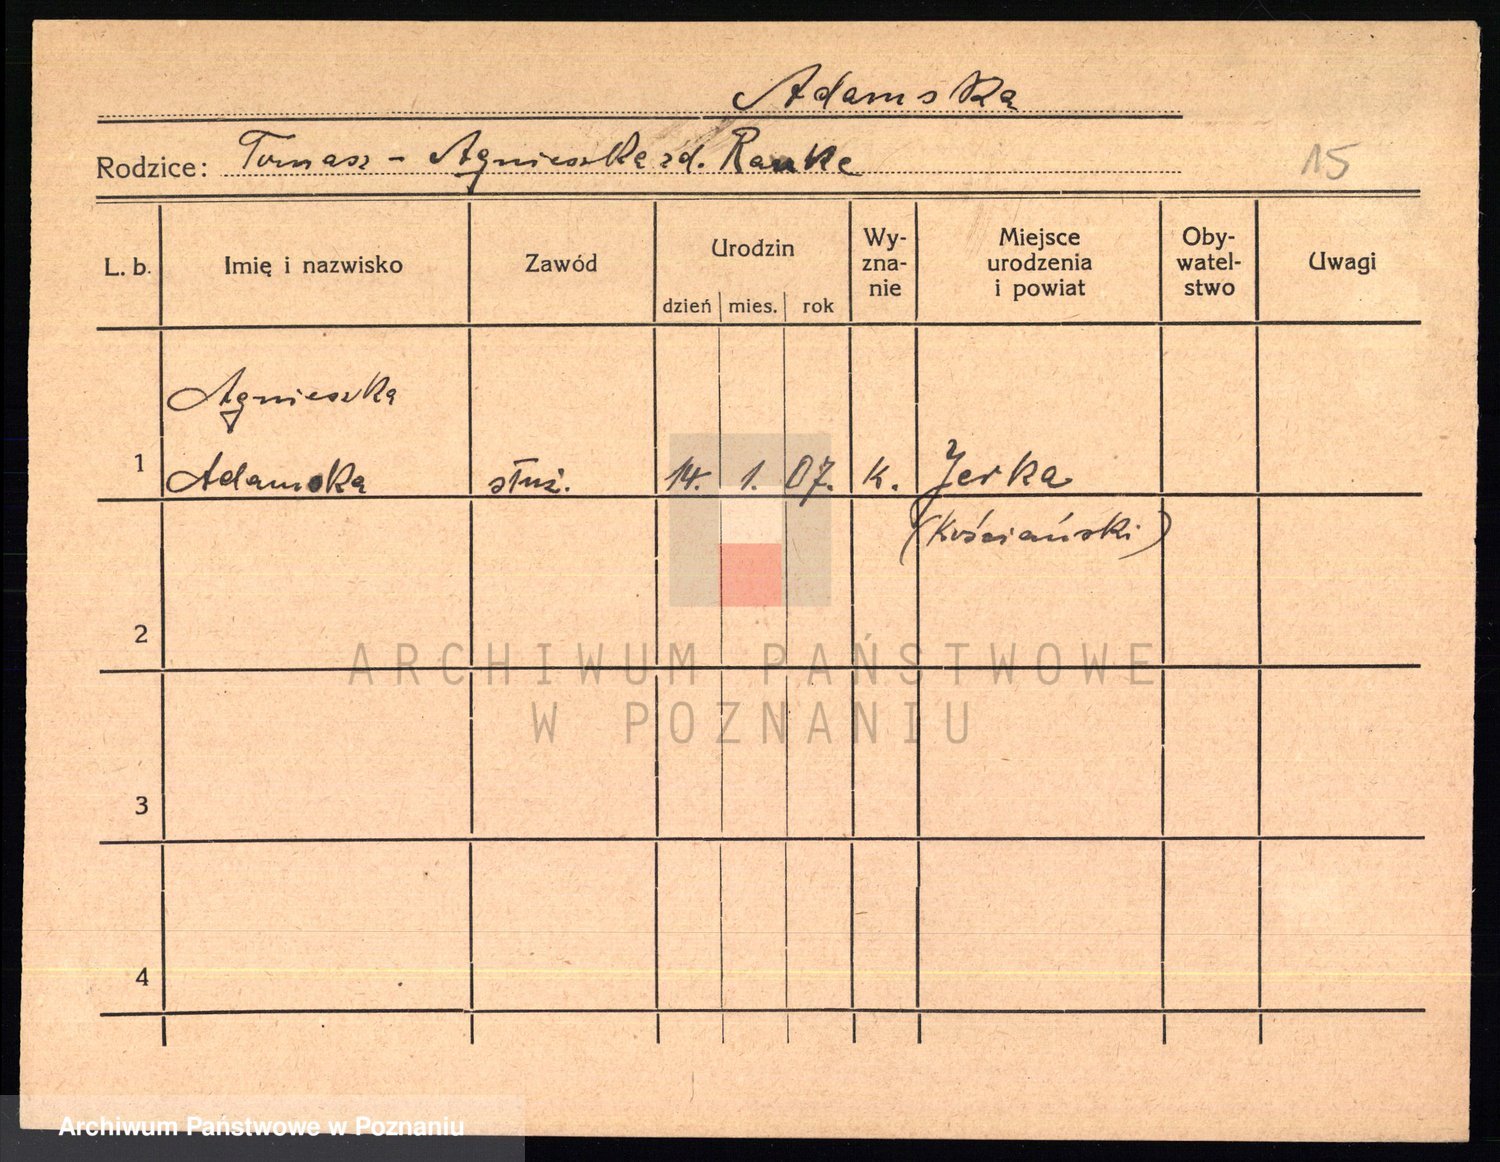 Adamska
Rodzice: Tomasz - Agnieszka zd. Ranke
15
L. b. Imię i nazwisko Zawód Urodzin dzień mies. rok Wy-zna-nie Miejsce urodzenia i powiat Oby-watel-stwo Uwagi
Agnieszka
1 Adamska służ. 14. 1. 07. k. Jerka
(Kościański)
2
ARCHIWUM PAŃSTWOWE
W POZNANIU
3
4
Archiwum Państwowe w Poznaniu